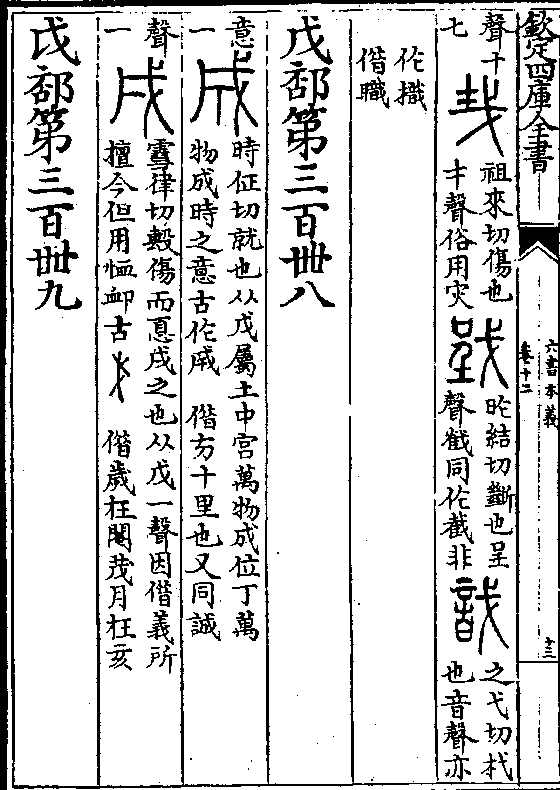 欽定四庫全書
六書本義
卷十二
十三
聲十
七
𢦏
祖來切傷也
才聲俗用灾
𢧵
昨結切斷也呈
聲㦸同作截非
戠
之弋切杙
也音聲亦
作
借職
戊部第三百卌八
意
一
成
時征切就也从戊屬土中宮萬物成位丁萬
物成時之意古作 借方十里也又同誠
聲
一
戌
雪律切 傷而 戌之也从戊一聲因借義所
擅今但用恤卹古 借歲在閹茂月在亥
戉部第三百卌九